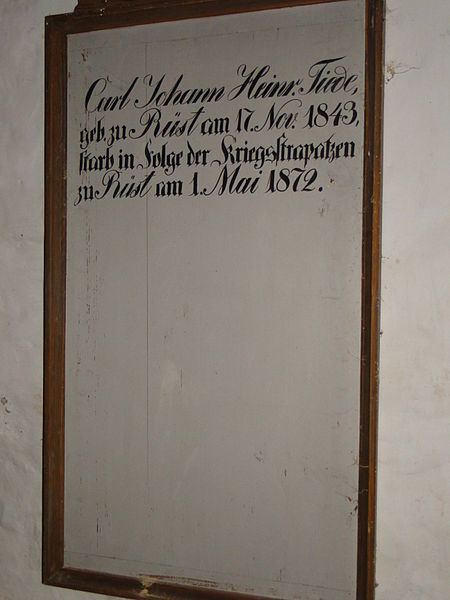 Carl Johann Heinr. Tiede,
geb. zu Rüst am 17. Nov. 1843,
starb in Folge der Kriegsstrapatzen
zu Rüst am 1. Mai 1872.